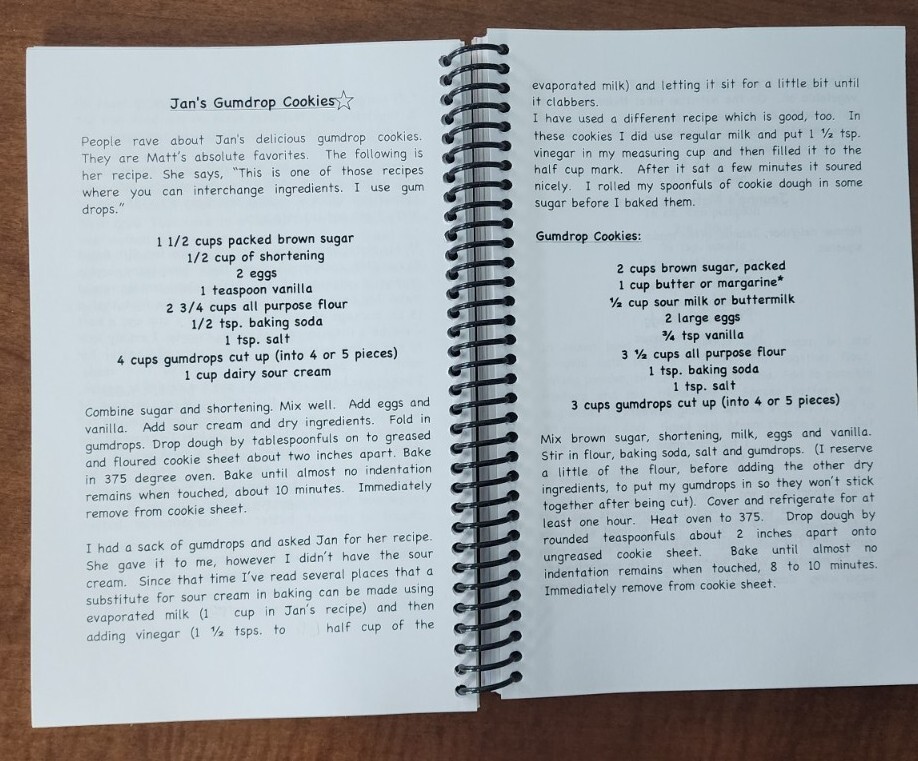 Jan's Gumdrop Cookies☆
People rave about Jan's delicious gumdrop cookies.
They are Matt's absolute favorites. The following is
her recipe. She says, "This is one of those recipes
where you can interchange ingredients. I use gum
drops."
1 1/2 cups packed brown sugar
1/2 cup of shortening
2 eggs
1 teaspoon vanilla
2 3/4 cups all purpose flour
1/2 tsp. baking soda
1 tsp. salt
4 cups gumdrops cut up (into 4 or 5 pieces)
1 cup dairy sour cream
Combine sugar and shortening. Mix well. Add eggs and
vanilla. Add sour cream and dry ingredients. Fold in
gumdrops. Drop dough by tablespoonfuls on to greased
and floured cookie sheet about two inches apart. Bake
in 375 degree oven. Bake until almost no indentation
remains when touched, about 10 minutes. Immediately
remove from cookie sheet.
I had a sack of gumdrops and asked Jan for her recipe.
She gave it to me, however I didn't have the sour
cream. Since that time I've read several places that a
substitute for sour cream in baking can be made using
evaporated milk (1 cup in Jan's recipe) and then
adding vinegar (1 ½ tsps. to half cup of the
evaporated milk) and letting it sit for a little bit until
it clabbers.
I have used a different recipe which is good, too. In
these cookies I did use regular milk and put 1 ½ tsp.
vinegar in my measuring cup and then filled it to the
half cup mark. After it sat a few minutes it soured
nicely. I rolled my spoonfuls of cookie dough in some
sugar before I baked them.
Gumdrop Cookies:
2 cups brown sugar, packed
1 cup butter or margarine*
½ cup sour milk or buttermilk
2 large eggs
¾ tsp vanilla
3 ½ cups all purpose flour
1 tsp. baking soda
1 tsp. salt
3 cups gumdrops cut up (into 4 or 5 pieces)
Mix brown sugar, shortening, milk, eggs and vanilla.
Stir in flour, baking soda, salt and gumdrops. (I reserve
a little of the flour, before adding the other dry
ingredients, to put my gumdrops in so they won't stick
together after being cut). Cover and refrigerate for at
least one hour. Heat oven to 375. Drop dough by
rounded teaspoonfuls about 2 inches apart onto
ungreased cookie sheet. Bake until almost no
indentation remains when touched, 8 to 10 minutes.
Immediately remove from cookie sheet.